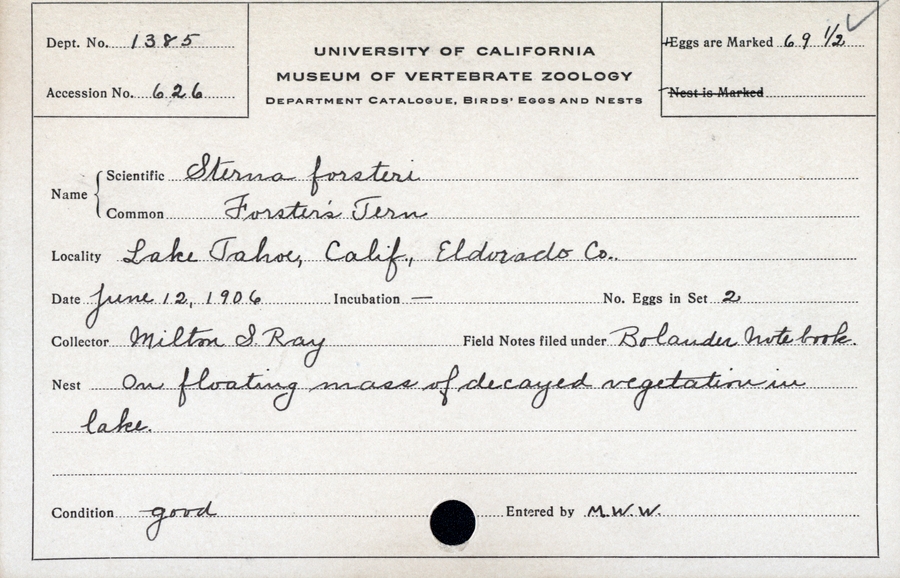 Dept. No. 1385
Accession No. 626
UNIVERSITY OF CALIFORNIA
MUSEUM OF VERTEBRATE ZOOLOGY
DEPARTMENT CATALOGUE, BIRDS' EGGS AND NESTS
Eggs are Marked 69 1/2
Nest is Marked
Name
Scientific Sterna forsteri
Common Forster's Tern
Locality Lake Tahoe, Calif., Eldorado Co.
Date June 12, 1906 Incubation — No. Eggs in Set 2
Collector Milton S. Ray Field Notes filed under Bolander Note book.
Nest On floating mass of decayed vegetation in
lake.
Condition good Entered by M.W.W.